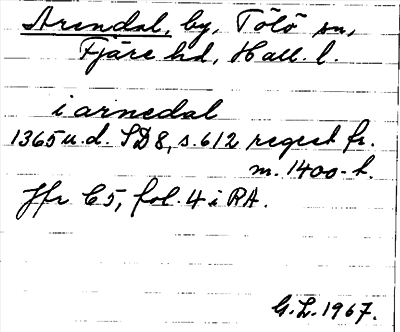 Arendal, by, Tölö sn,
Fjäre hd, Hall. l.
i arnedal
1365 u.d. SD 8, s. 612 regest fr.
m. 1400-t.
Jfr C5, fol. 4 i RA.
G.L. 1967.